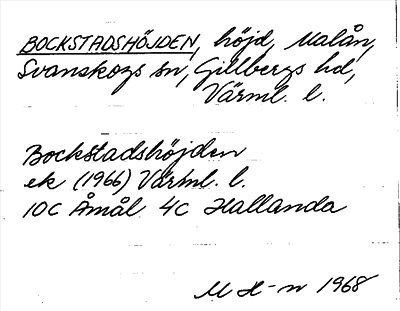 BOCKSTADSHÖJDEN, höjd, Malån,
Svanskogs sn, Gillbergs hd,
Värml. l.
Bockstadshöjden
ek (1966) Värml. l.
10C Åmål 4c Hallanda
M H-n 1968